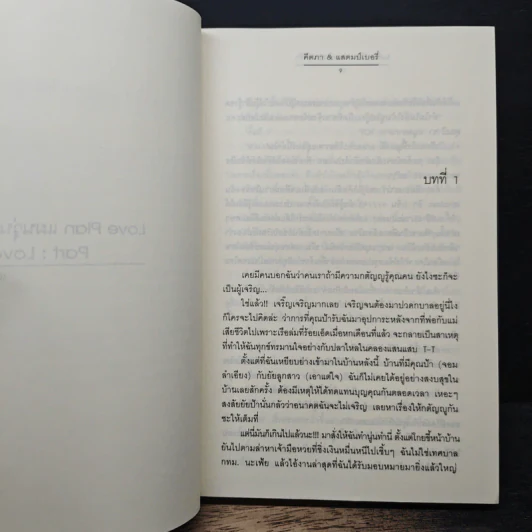 Love Plan แผนวุ่น
Part : Love
คีตภา & แสตมป์เบอรี่
บทที่ 1
เคยมีคนบอกฉันว่าคนเราถ้ามีความกตัญญูรู้คุณคน ยังไงซะก็จะ
เป็นผู้เจริญ...
ใช่แล้ว!! เจริ๊ญเจริญมากเลย เจริญจนต้องมาปวดกบาลอยู่นี่ไง
ก็ใครจะไปคิดล่ะ ว่าการที่คุณป้ารับฉันมาอุปการะหลังจากที่พ่อกับแม่
เสียชีวิตไปเพราะเรือล่มที่ร้อยเอ็ดเมื่อหกเดือนที่แล้ว จะกลายเป็นสาเหตุ
ที่ทำให้ฉันทุกข์ทรมานใจอย่างกับปลาไหลในคลองแสนแสบ T-T
ตั้งแต่ที่ฉันเหยียบย่างเข้ามาในบ้านหลังนี้ บ้านที่มีคุณป้า (จอม
ลำเอียง) กับยัยลูกสาว (เอาแต่ใจ) ฉันก็ไม่เคยได้อยู่อย่างสงบสุขใน
บ้านเลยสักครั้ง ต้องมีเหตุให้ได้ทดแทนบุญคุณกันตลอดเวลา เหอะๆ
สงสัยยัยป้านั่นกลัวว่าอนาคตฉันจะไม่เจริญ เลยหาเรื่องให้กตัญญูกัน
ซะให้เต็มที่
แต่นี่มันก็เกินไปแล้วนะ!!! มาสั่งให้ฉันทำนู่นทำนี่ ตั้งแต่โกยขี้หน้าบ้าน
ยันไปตามล่าหาเจ้ามือหวยที่ชิ่งเงินหมื่นหนีไปเชิ้บๆ ฉันไม่ใช่เทศบาล
กทม. นะเฟ้ย แล้วไอ้งานล่าสุดที่ฉันได้รับมอบหมายมายิ่งแล้วใหญ่